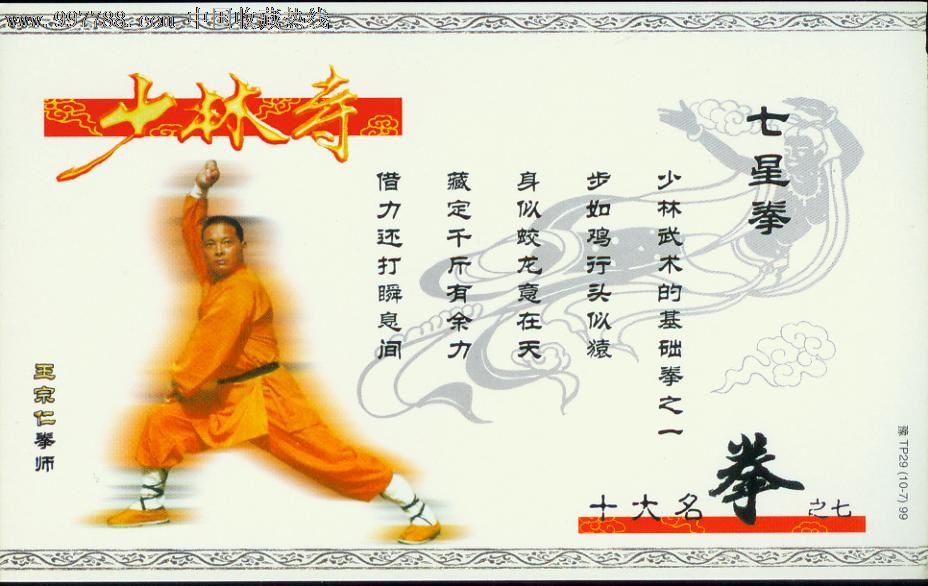 www.997788.com 中国收藏热线
少林寺
七星拳
少林武术的基础拳之一
步如鸡行头似猿
身似蛟龙意在天
藏定千斤有余力
借力还打瞬息间
王宗仁拳师
十大名拳之七
豫 TP29 (10-7) 99